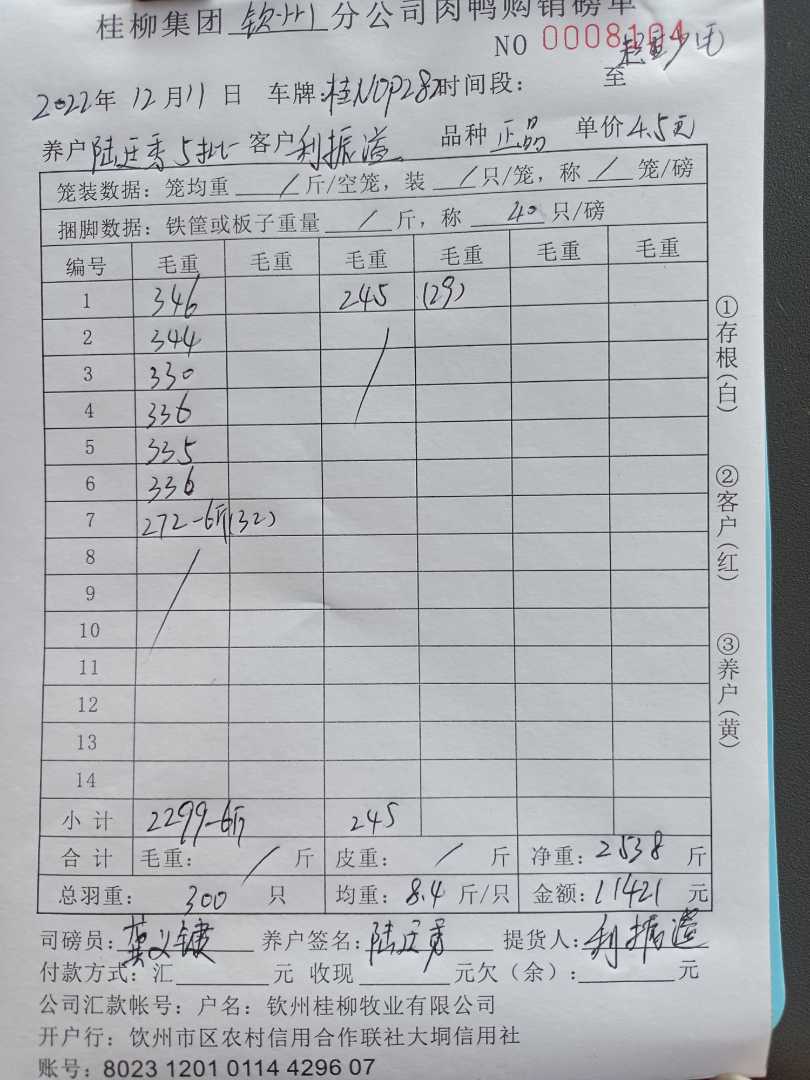 桂柳集团 钦州 分公司肉鸭购销磅单
NO 0008104
2022年 12月11日 车牌:桂N0P282 时间段: 至
养户 陆庄秀5批 客户 利振溢 品种 正品 单价 4.5元
笼装数据: 笼均重 / 斤/空笼, 装 / 只/笼, 称 / 笼/磅
捆脚数据: 铁筐或板子重量 / 斤, 称 40 只/磅
编号 毛重 毛重 毛重 毛重 毛重 毛重
1 346 245 (29)
2 344 /
3 330
4 336
5 335
6 336
7 272-6斤(32)
8 /
9
10
11
12
13
14
小计 2299-6斤 245
合计 毛重: / 斤 皮重: / 斤 净重: 2538 斤
总羽重: 300 只 均重: 8.4 斤/只 金额: 11421 元
司磅员: 养户签名: 陆庄秀 提货人: 利振溢
付款方式: 汇 元 收现 元欠(余): 元
公司汇款帐号: 户名: 钦州桂柳牧业有限公司
开户行: 饮州市区农村信用合作联社大垌信用社
账号: 8023 1201 0114 4296 07
①存根(白)
②客户(红)
③养户(黄)